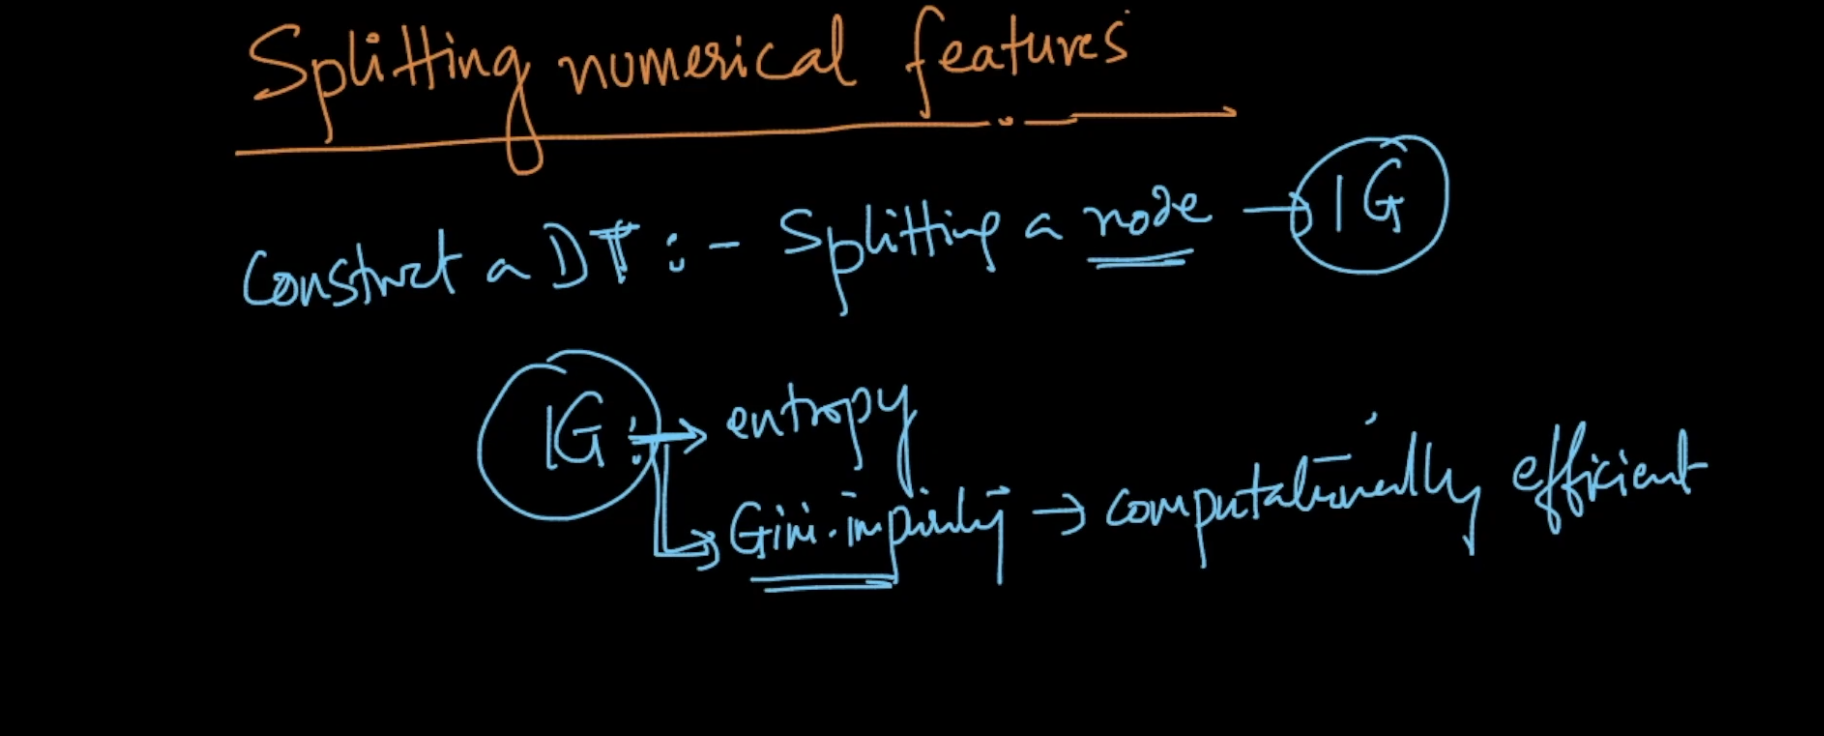 Splitting numerical features
Construct a DT :- Splitting a node → IG
IG: → entropy
→ Gini impurity → computationally efficient